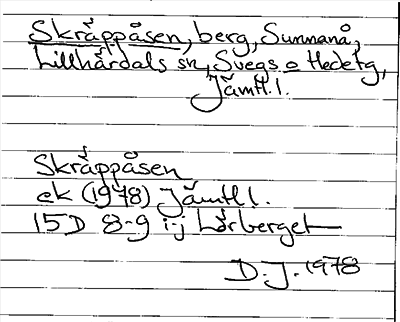 Skråppåsen, berg, Summanå,
Lillhärdals sn, Svegs o Hedetg,
Jämtl. l.
Skråppåsen
ek (1978) Jämtl l.
15D 8-9 i-j Lårberget
D. J. 1978